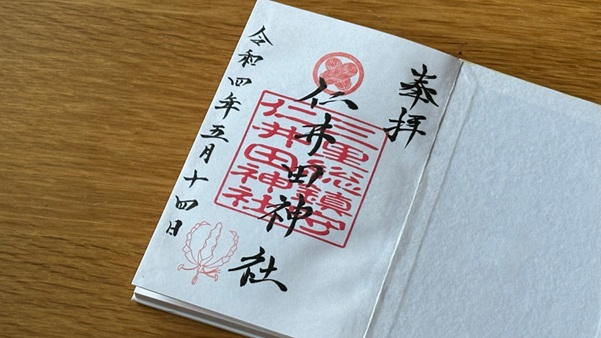 奉拝
三里総鎮守
仁井田神社
仁井田神社
令和四年五月十四日